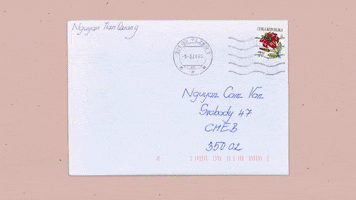 Nguyen Tran Quang
ČESKÁ REPUBLIKA
Nguyen Cam Van
Svobody 47
CHEB
350 02